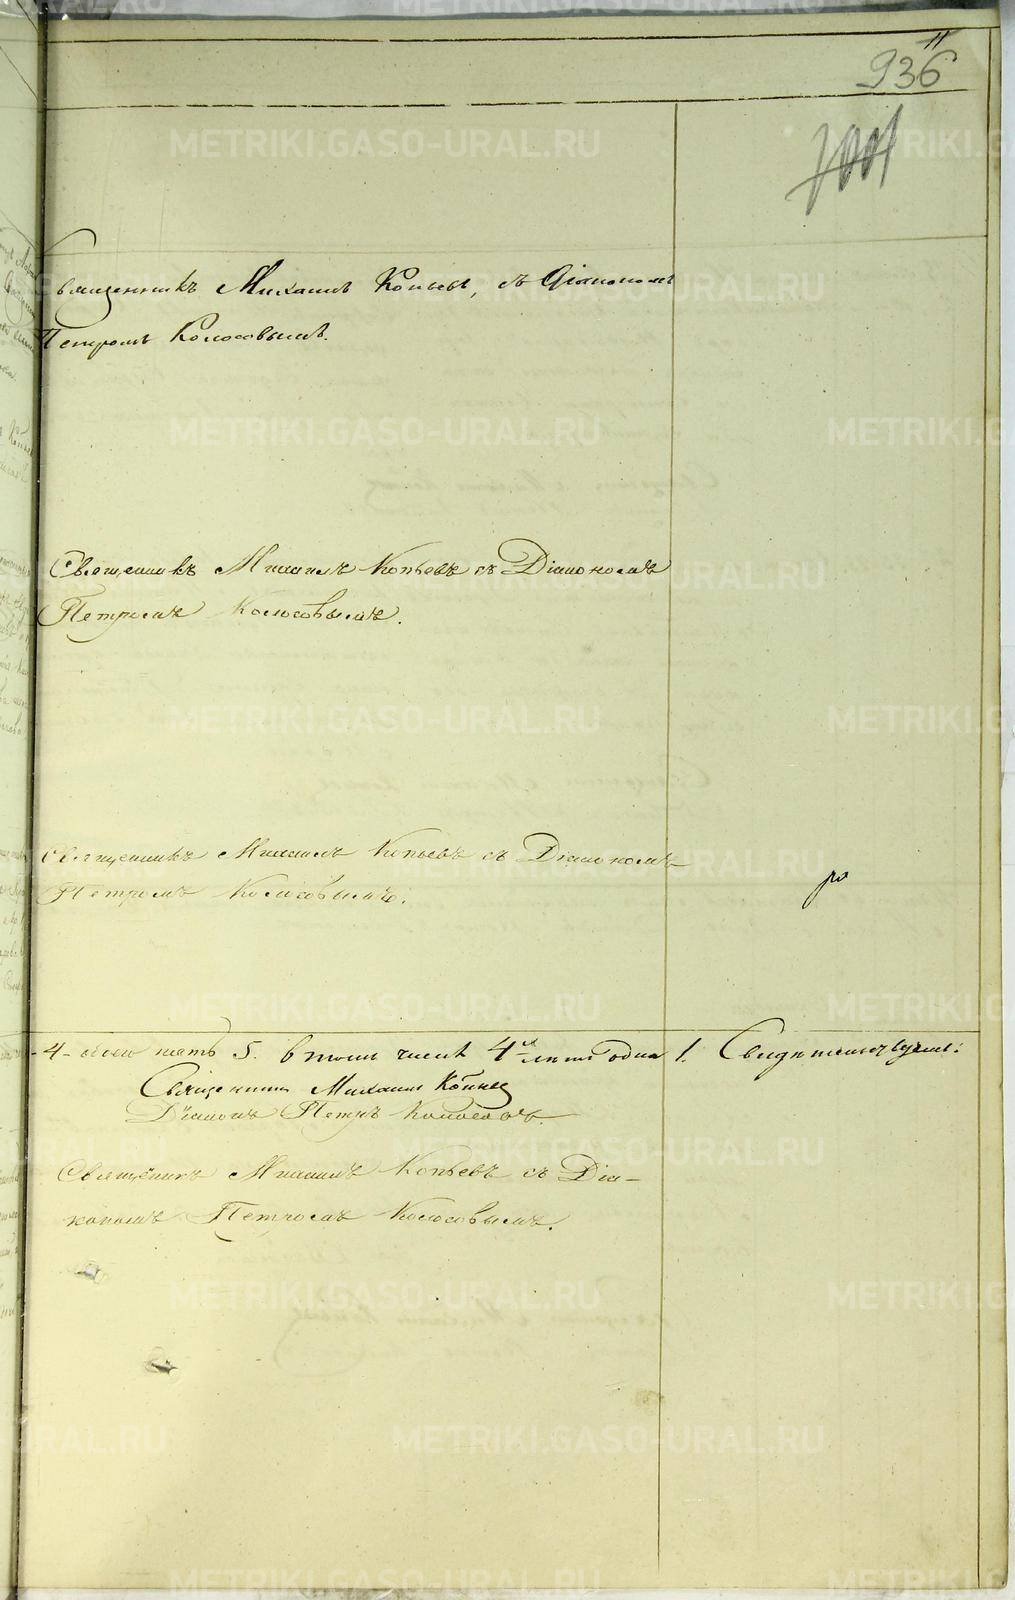 11
936
Священникъ Михаилъ Копьевъ, съ Діакономъ
Петромъ Колосовымъ.
Священникъ Михаилъ Копьевъ съ Діакономъ
Петромъ Колосовымъ.
Священникъ Михаилъ Копьевъ съ Діакономъ
Петромъ Колосовымъ.
-4- обоего пять 5. в томъ числѣ 1. Свидѣтельствуемъ:
Священникъ Михаилъ Копьевъ
Діаконъ Петръ Колосовъ.
Священникъ Михаилъ Копьевъ съ Діа-
кономъ Петромъ Колосовымъ.
METRIKI.GASO-URAL.RU